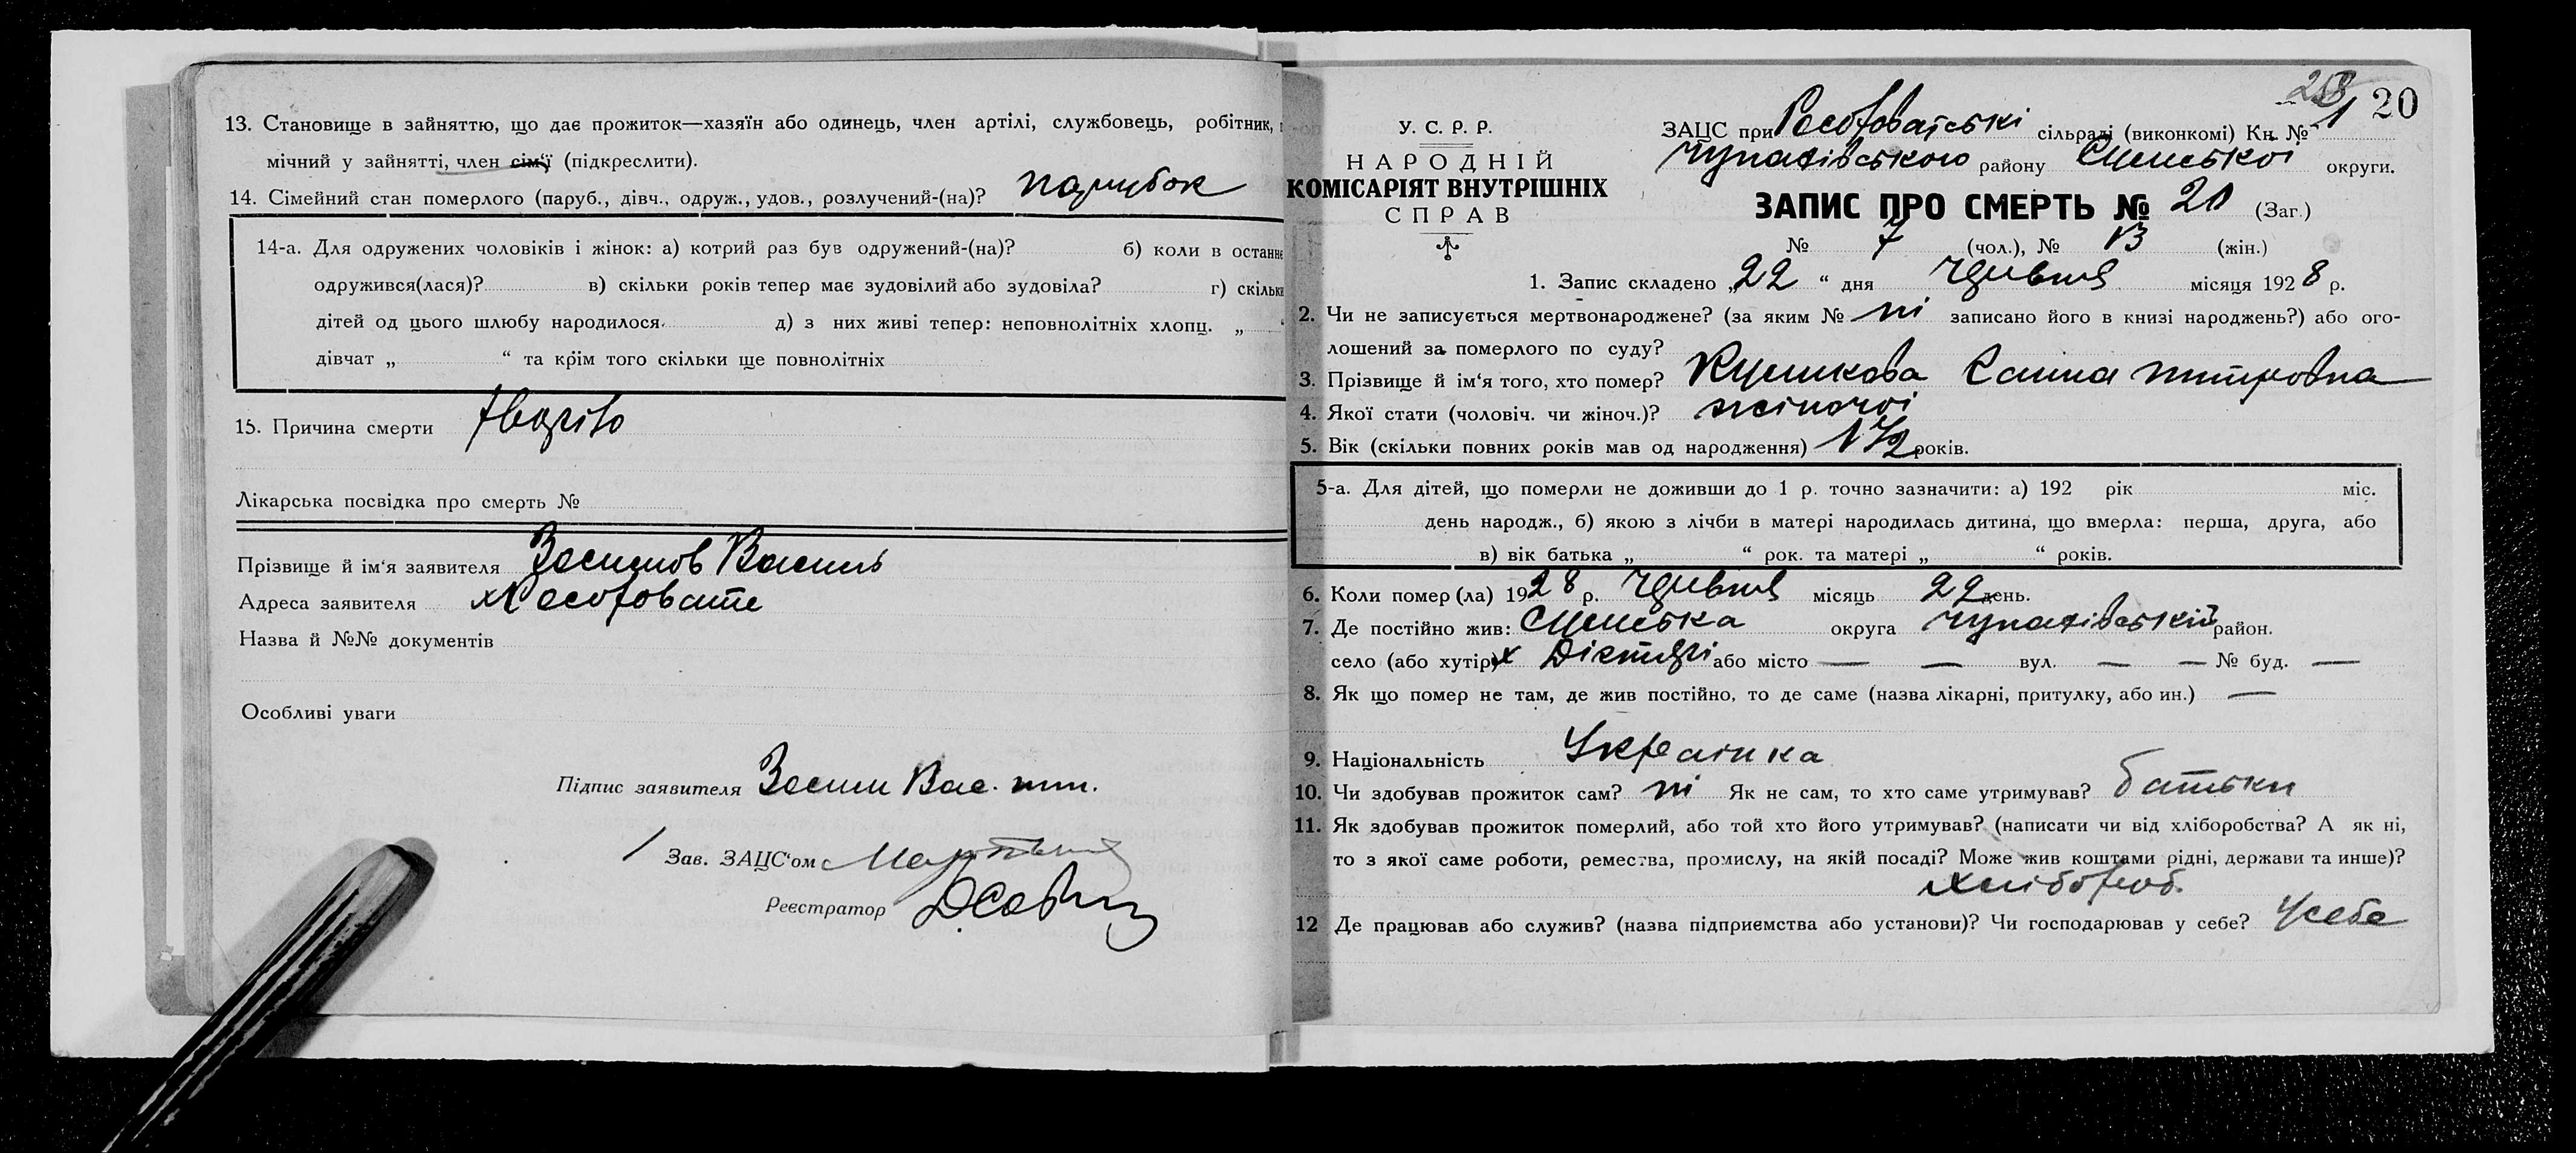 13. Становище в зайняттю, що дає прожиток—хазяїн або одинець, член артілі, службовець, робітник,
мічний у зайнятті, член сім'ї (підкреслити).
14. Сімейний стан померлого (паруб., дівч., одруж., удов., розлучений-(на)? парубок
14-а. Для одружених чоловіків і жінок: а) котрий раз був одружений-(на)? б) коли в останнє
одружився(лася)? в) скільки років тепер має зудовілий або зудовіла? г) скільки
дітей од цього шлюбу народилося. д) з них живі тепер: неповнолітніх хлопц. „
дівчат „ “ та крім того скільки ще повнолітніх
15. Причина смерти
Лікарська посвідка про смерть №
Прізвище й ім'я заявителя Василь
Адреса заявителя
Назва й №№ документів
Особливі уваги
Підпис заявителя Вас.
Зав. ЗАЦС'ом
Реєстратор
20
У. С. Р. Р.
НАРОДНІЙ
КОМІСАРІЯТ ВНУТРІШНІХ
СПРАВ
ЗАЦС при сільраді (виконкомі) Кн. № 1
Чупахівського району Сумської округи.
ЗАПИС ПРО СМЕРТЬ № 20 (Заг.)
№ 7 (чол.), № 13 (жін.)
1. Запис складено „22“ дня червня місяця 1928 р.
2. Чи не записується мертвонароджене? (за яким № ні записано його в книзі народжень?) або ого-
лошений за померлого по суду?
3. Прізвище й ім'я того, хто помер?
4. Якої стати (чоловіч. чи жіноч.)? жіночої
5. Вік (скільки повних років мав од народження) 1 1/2 років.
5-а. Для дітей, що померли не доживши до 1 р. точно зазначити: а) 192 рік міс.
день народж., б) якою з лічби в матері народилась дитина, що вмерла: перша, друга, або
в) вік батька „ “ рок. та матері „ “ років.
6. Коли помер (ла) 1928 р. червня місяць 22 день.
7. Де постійно жив: Сумська округа Чупахівський район.
село (або хутір) х Дігтярі або місто — — вул. — — № буд. —
8. Як що помер не там, де жив постійно, то де саме (назва лікарні, притулку, або ин.) —
9. Національність Українка
10. Чи здобував прожиток сам? ні Як не сам, то хто саме утримував? батьки
11. Як здобував прожиток померлий, або той хто його утримував? (написати чи від хліборобства? А як ні,
то з якої саме роботи, ремества, промислу, на якій посаді? Може жив коштами рідні, держави та инше)?
хлібороб.
12 Де працював або служив? (назва підприємства або установи)? Чи господарював у себе? У себе